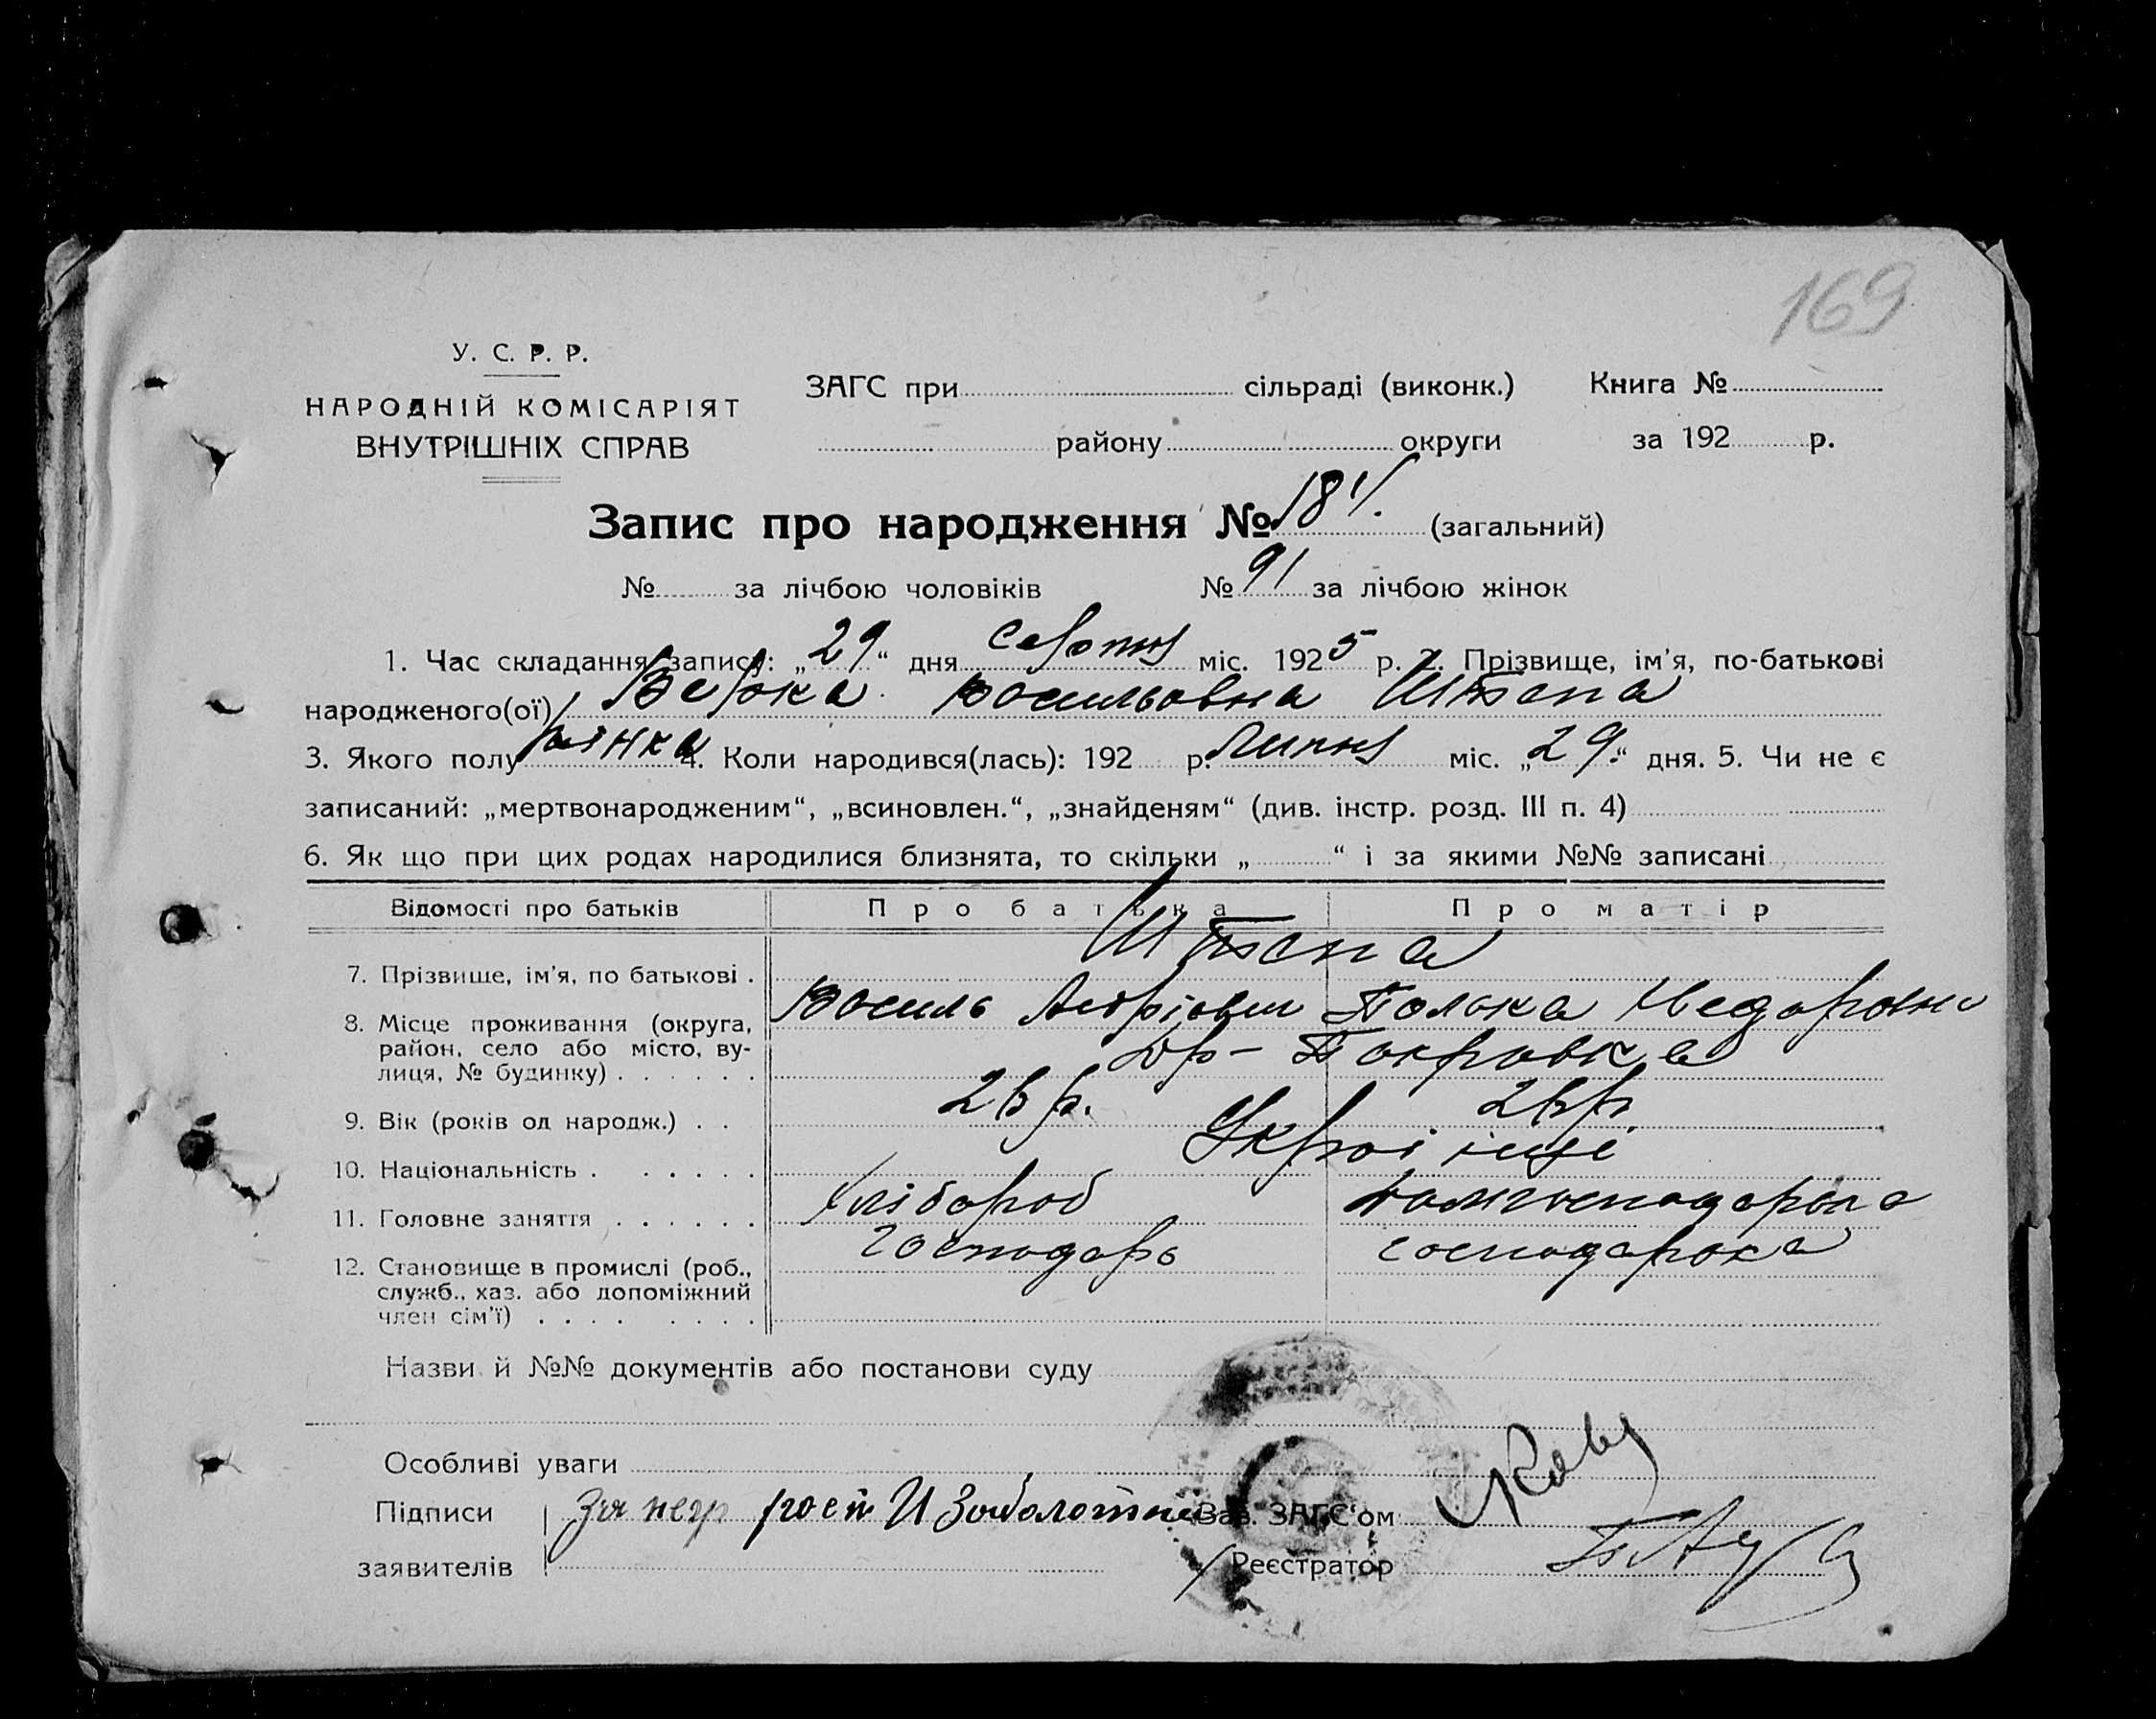 169
У. С. Р. Р.
НАРОДНІЙ КОМІСАРІЯТ
ВНУТРІШНІХ СПРАВ
ЗАГС при сільраді (виконк.) Книга №
району округи за 192 р.
Запис про народження № 181. (загальний)
№ за лічбою чоловіків № 91 за лічбою жінок
1. Час складання запису: „29“ дня серпня міс. 1925 р. 2. Прізвище, ім'я, по-батькові
народженого(ої) Васильовна Штепа
3. Якого полу жінка 4. Коли народився(лась): 192 р. Липня міс. „29.“ дня. 5. Чи не є
записаний: „мертвонародженим“, „всиновлен.“, „знайденям“ (див. інстр. розд. III п. 4)
6. Як що при цих родах народилися близнята, то скільки „ “ і за якими №№ записані
Відомості про батьків Про батька Про матір
Штепа
7. Прізвище, ім'я, по батькові .
Василь
8. Місце проживання (округа,
район, село або місто, ву-
лиця, № будинку) . . . . . .
Покровка
26 р. 26 р.
9. Вік (років од народж.) . .
Українці
10. Національність . . . . . .
Хлібороб
11. Головне заняття . . . . . .
господарь господарока
12. Становище в промислі (роб.,
служб., хаз. або допоміжний
член сім'ї) . . . . . . . .
Назви й №№ документів або постанови суду
Особливі уваги
Підписи За негр рост И Заболотне Зав. ЗАГС‘ом
заявителів Реєстратор